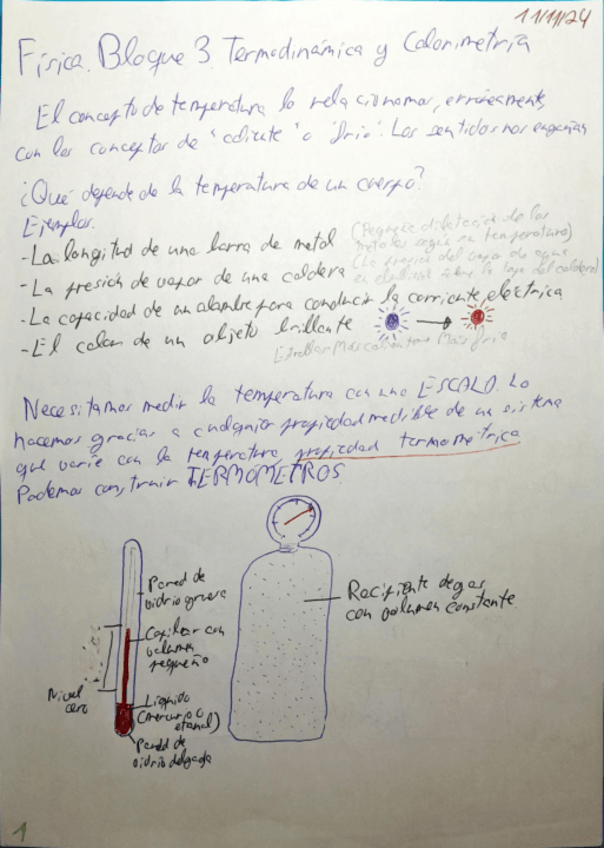 11/11/24
Física. Bloque 3. Termodinámica y Calorimetría
El concepto de temperatura lo relacionamos, erróneamente,
con los conceptos de "caliente" o "frío". Los sentidos nos engañan
¿Qué depende de la temperatura de un cuerpo?
Ejemplos.
-La longitud de una barra de metal (Pequeña dilatación de los
metales según su temperatura)
-La presión de vapor de una caldera (La presión del vapor de agua
en la tapa del caldero)
-La capacidad de un alambre para conducir la corriente eléctrica
-El color de un objeto brillante
Estrellas Más caliente Más fría
Necesitamos medir la temperatura con una ESCALA. Lo
hacemos gracias a cualquier propiedad medible de un sistema
que varíe con la temperatura, propiedad termométrica
Podemos construir TERMÓMETROS.
Pared de
vidrio gruesa
Capilar con
volumen
pequeño
Nivel
cero
Líquido
(mercurio o
etanol)
Pared de
vidrio delgada
Recipiente de gas
con volumen constante
1